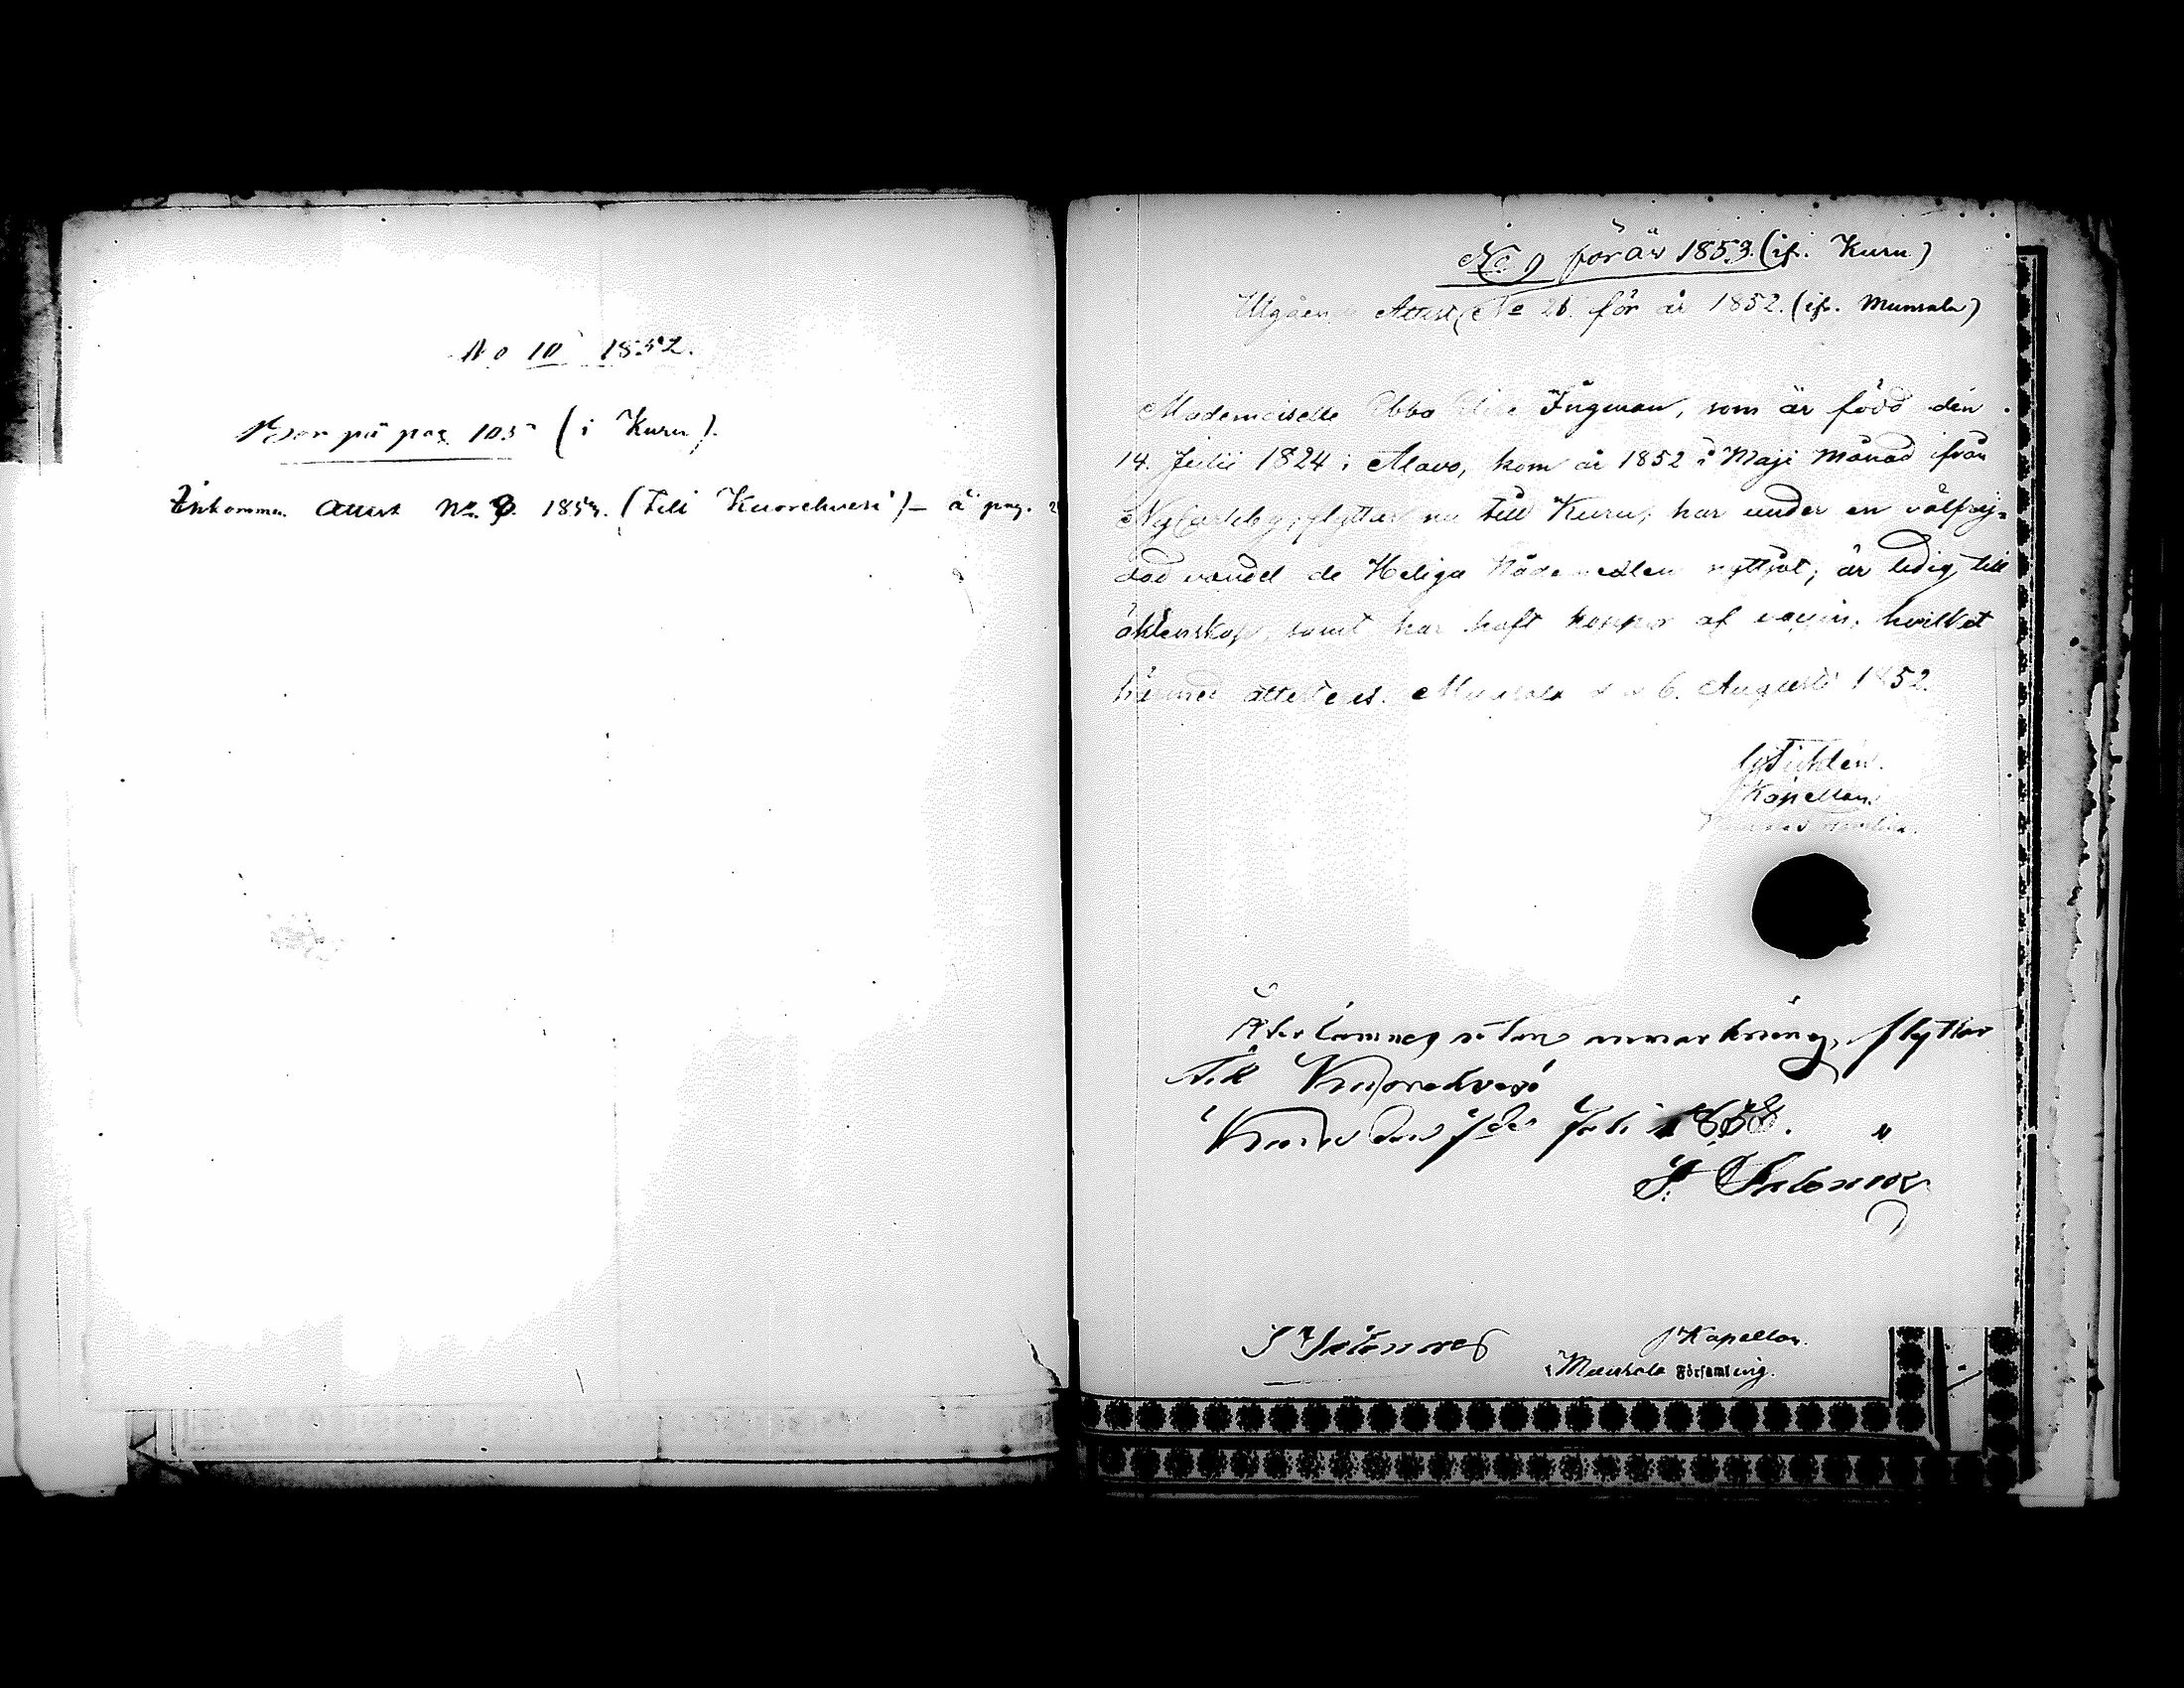 No 10 1852.
Bor på pag 105 (i Kuru).
Inkommen Attest No. 9. 1853. (till Kuorehvesi) — å pag.
No 9 för år 1853. (ifr. Kuru)
Utgående Attest No 26. för år 1852. (ifr. Munsala)
Mademoiselle Ebba Elise Ingman, som är född den
14. Julii 1824 i Alavo, kom år 1852 i Maji Månad ifrån
NyCarleby, flyttar nu till Kuru; har under en välfrej=
dad vandel de Heliga Nådemedlen nyttjat; är ledig till
äktenskap, samt har haft koppor af vaccin, hvilket
härmed attesteras. Munsala den 6. Augusti 1852.
Kapellan.
Återlämnas utan anmärkning, flyttar
till Kuorehvesi
Kuru den 7de Juli 1853.
Kapellan.
i Munsala Församling.